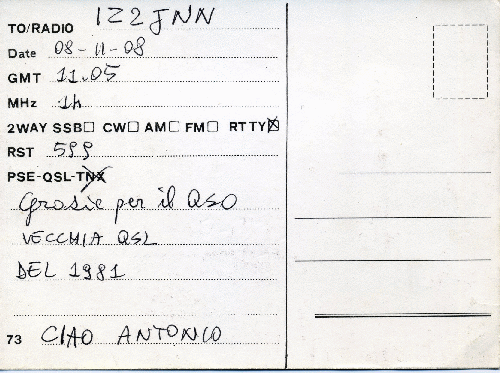 TO/RADIO IZ2JNN
Date 08-11-08
GMT 11.05
MHz 14
2WAY SSB☐ CW☐ AM☐ FM☐ RTTY☒
RST 599
PSE-QSL-TNX
Grazie per il QSO
VECCHIA QSL
DEL 1981
73 CIAO ANTONIO